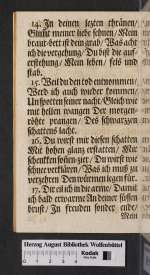 14. In deinen letzten thränen/
Glimt meiner liebe sehnen/ Mein
braut-bett ist dein grab/ Was acht
ich die verwesung/ Du bist die auf-
erstehung/ Mein leben/ fels und
stab.
15. Weil du den tod entnommen/
Werd ich auch wieder kommen/
Unser gantzer nacht/ Gleich wie
mit hellen wangen Der morgen-
röhte prangen/ Des schwartzen
schattens lacht.
16. Du wirst mit diesen schatten
Mit hohem glantz erstatten/ Mit
schnellem Du wirst wie
schnee verklären/ Was ich muß zu
verzehren Den würmern legen für.
17. Dir eil ich in die arme/ Damit
ich bald erwarme An deiner süssen
brust/ In freuden sonder ende/
Mein
Herzog August Bibliothek Wolfenbüttel